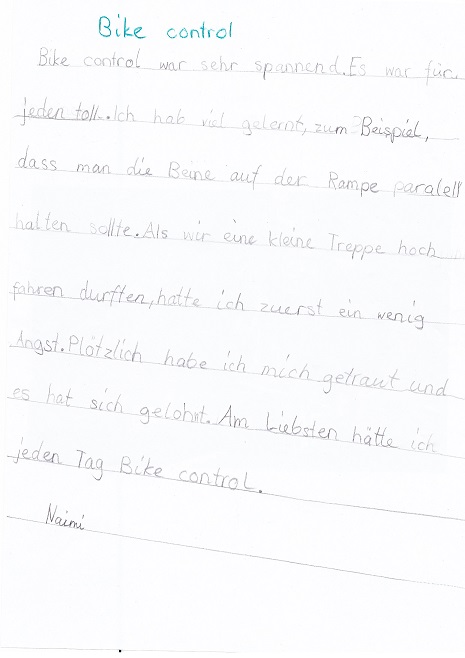 Bike control
Bike control war sehr spannend. Es war für
jeden toll. Ich hab viel gelernt, zum Beispiel,
dass man die Beine auf der Rampe paralell
halten sollte. Als wir eine kleine Treppe hoch
fahren durften, hatte ich zuerst ein wenig
Angst. Plötzlich habe ich mich getraut und
es hat sich gelohnt. Am Liebsten hätte ich
jeden Tag Bike control.
Naimi